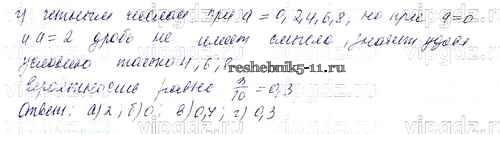 г) четным числом при a = 0, 2, 4, 6, 8, но при a = 0
и a = 2 дробь не имеет смысла, значит удов.
условию только 4, 6, 8
reshebnik5-11.ru
Вероятность равна 3/10 = 0,3
Ответ: а) 2, б) 0, в) 0,7; г) 0,3